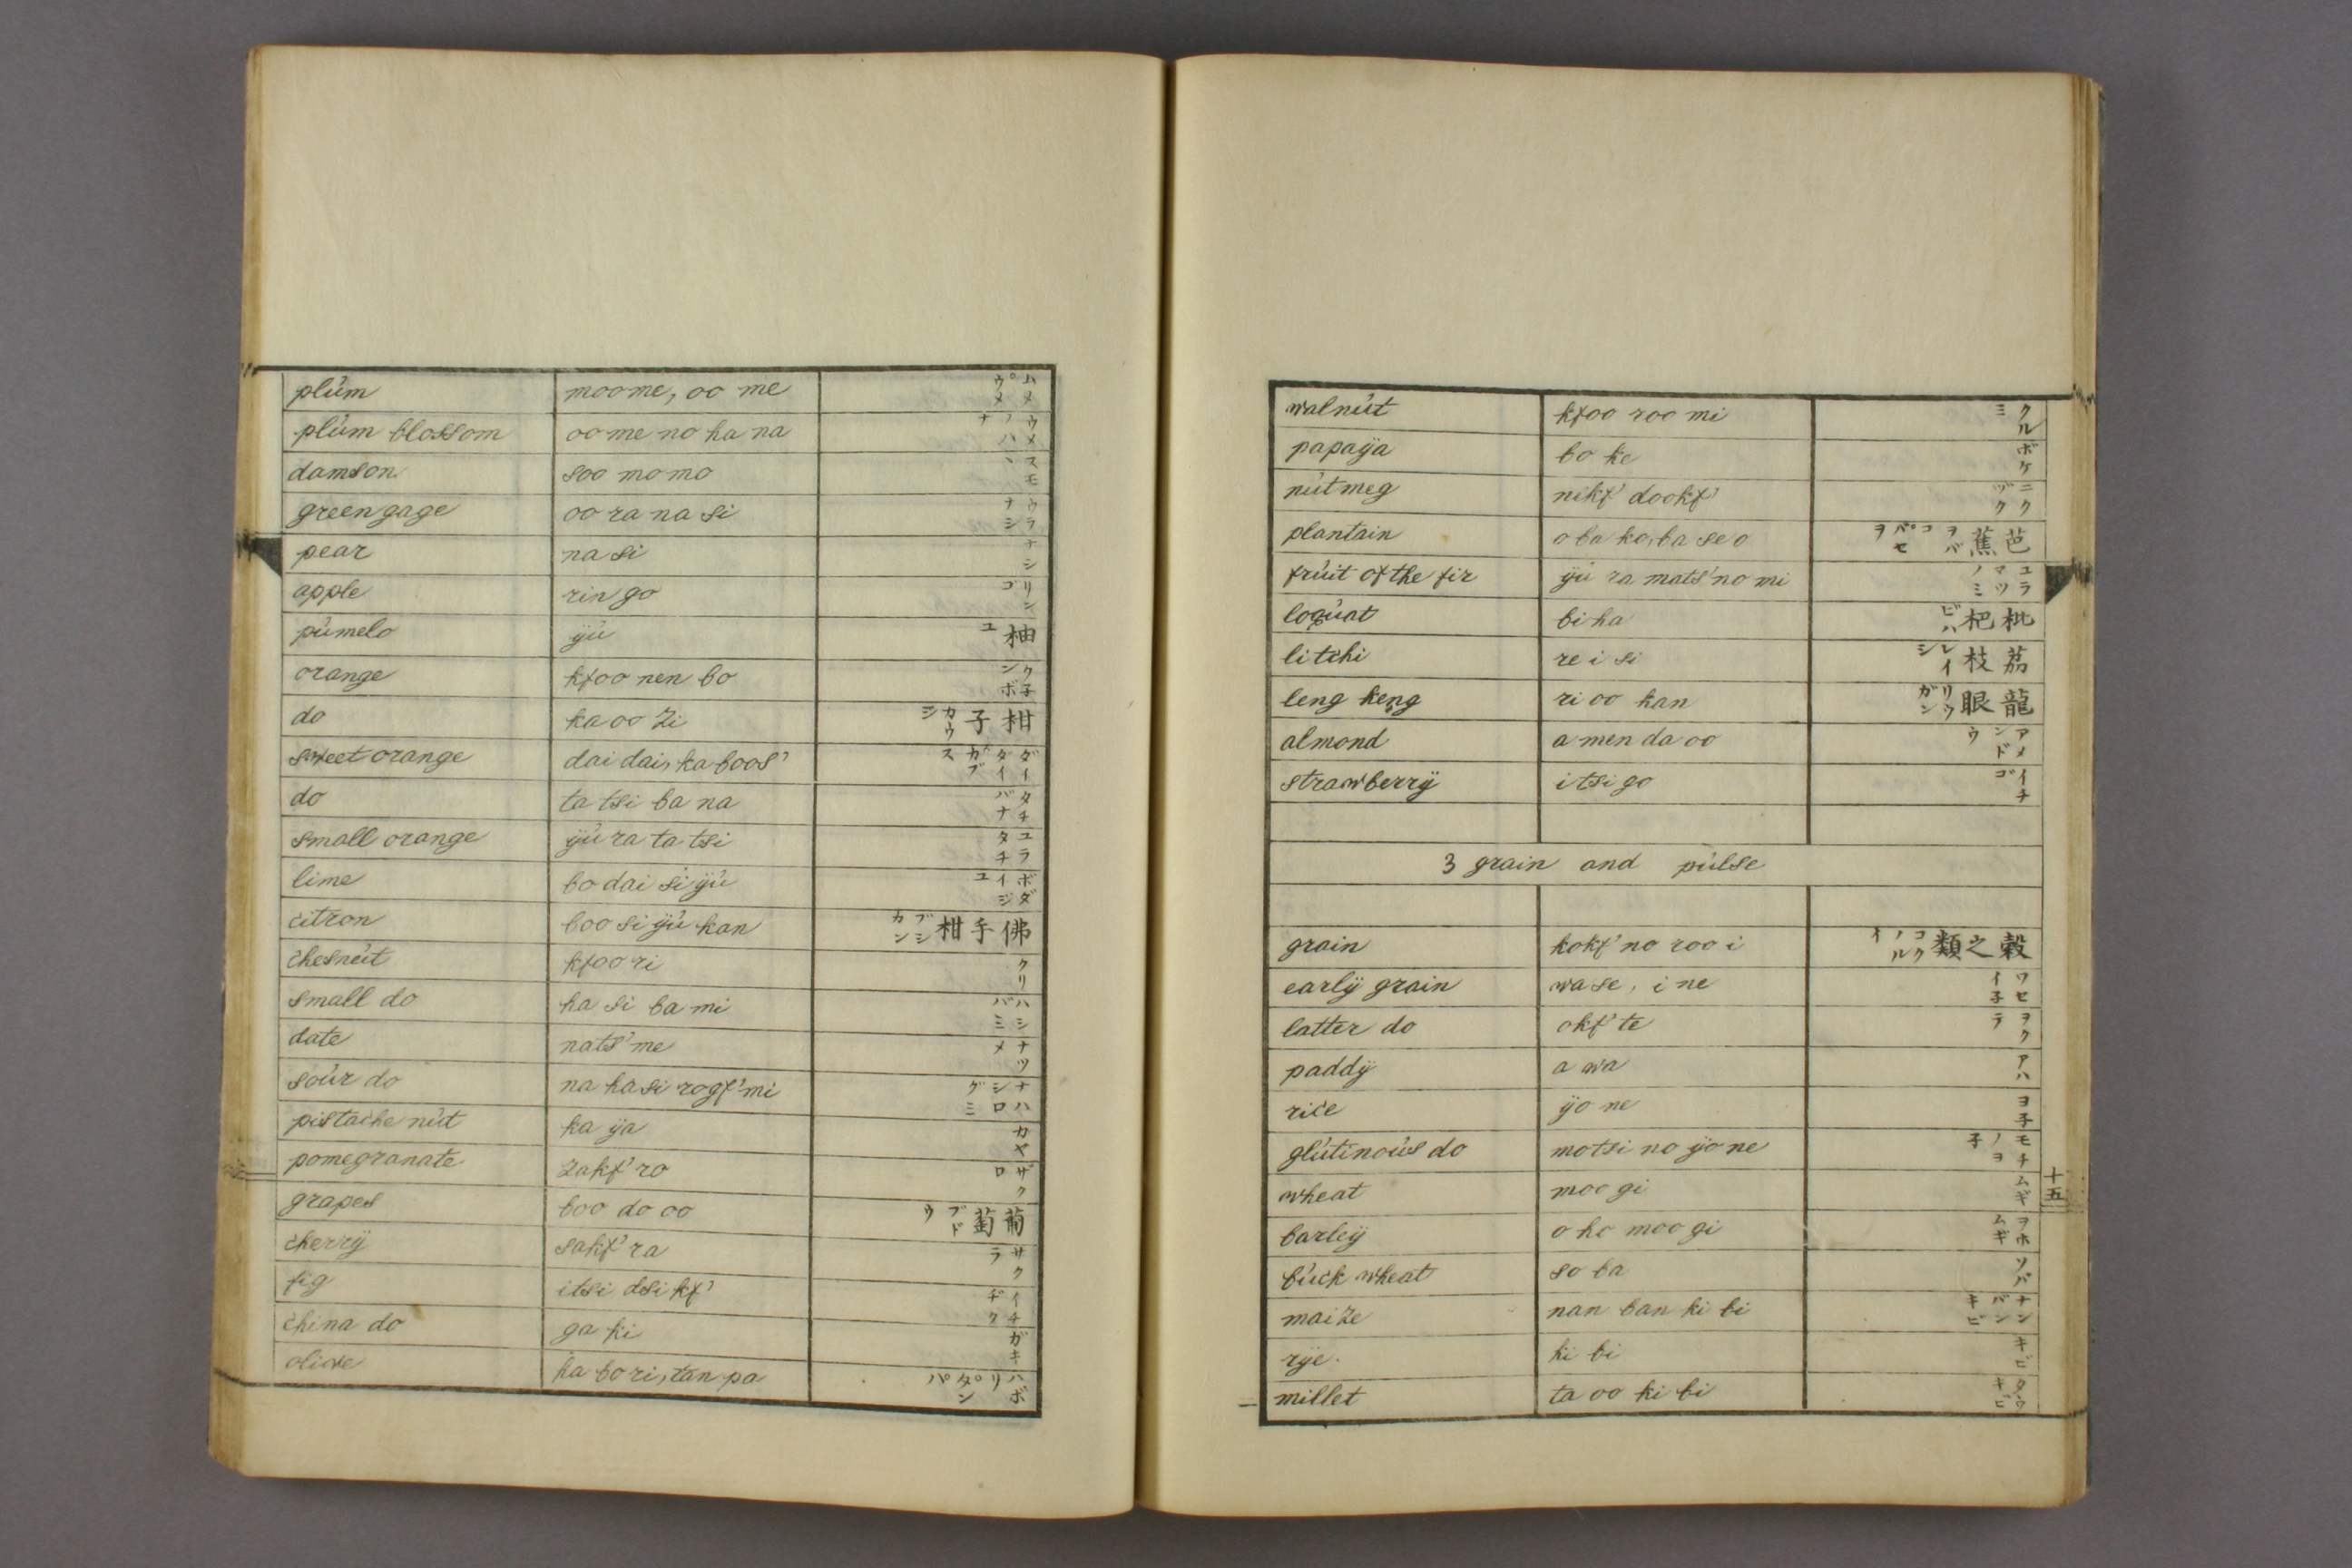 plúm moome, oo me ムメ ウメ
plúm blossom oo me no ha na ウメノハナ
damson soo mo mo スモヽ
green gage oo ra na si ウラナシ
pear na si ナシ
apple rin go リンゴ
púmelo ÿú 柚 ユ
orange kfoo nen bo ク子ンボ
do ka oo zi 柑子 カウシ
sweet orange dai dai, ka boos' ダイダイ カブス
do ta tsi ba na タチバナ
small orange ÿú ra ta tsi ユラタチ
lime bo dai si ÿú ボダイジユ
citron boo si ÿú kan 佛手柑 ブシカン
chesnút kfoo ri クリ
small do ha si ba mi ハシバミ
date nats' me ナツメ
soúr do na ha si rogf' mi ナハシロゲミ
pistache nút ka ÿa カヤ
pomegranate zakf' ro ザクロ
grapes boo do oo 葡萄 ブドウ
cherrÿ sakf' ra サクラ
fig itsi dsi kf' イチヂク
china do ga ki ガキ
olive ha bo ri, tan pa ハボリ タンパ
walnút kfoo roo mi クルミ
papaÿa bo ke ボケ
nútmeg nikf' dookf' ニクヅク
plantain o ba ko, ba se o 芭蕉 ヲバコ バセヲ
frúit of the fir ÿú ra mats' no mi ユラマツノミ
loqúat bi ha 枇杷 ビハ
litchi re i si 荔枝 レイシ
leng keng ri oo kan 龍眼 リウガン
almond a men da oo アメンドウ
strawberrÿ itsi go イチゴ
3 grain and púlse
grain kokf' no roo i 穀之類 コクノルイ
earlÿ grain wa se, i ne ワセイ子
latter do okf' te ヲクテ
paddÿ a wa アハ
rice ÿo ne ヨ子
glútinoús do motsi no ÿo ne モチノヨ子
wheat moo gi ムギ
barleÿ o ho moo gi ヲホムギ
búck wheat so ba ソバ
maize nan ban ki bi ナンバンキビ
rÿe. ki bi キビ
millet ta oo ki bi タウキビ
十五